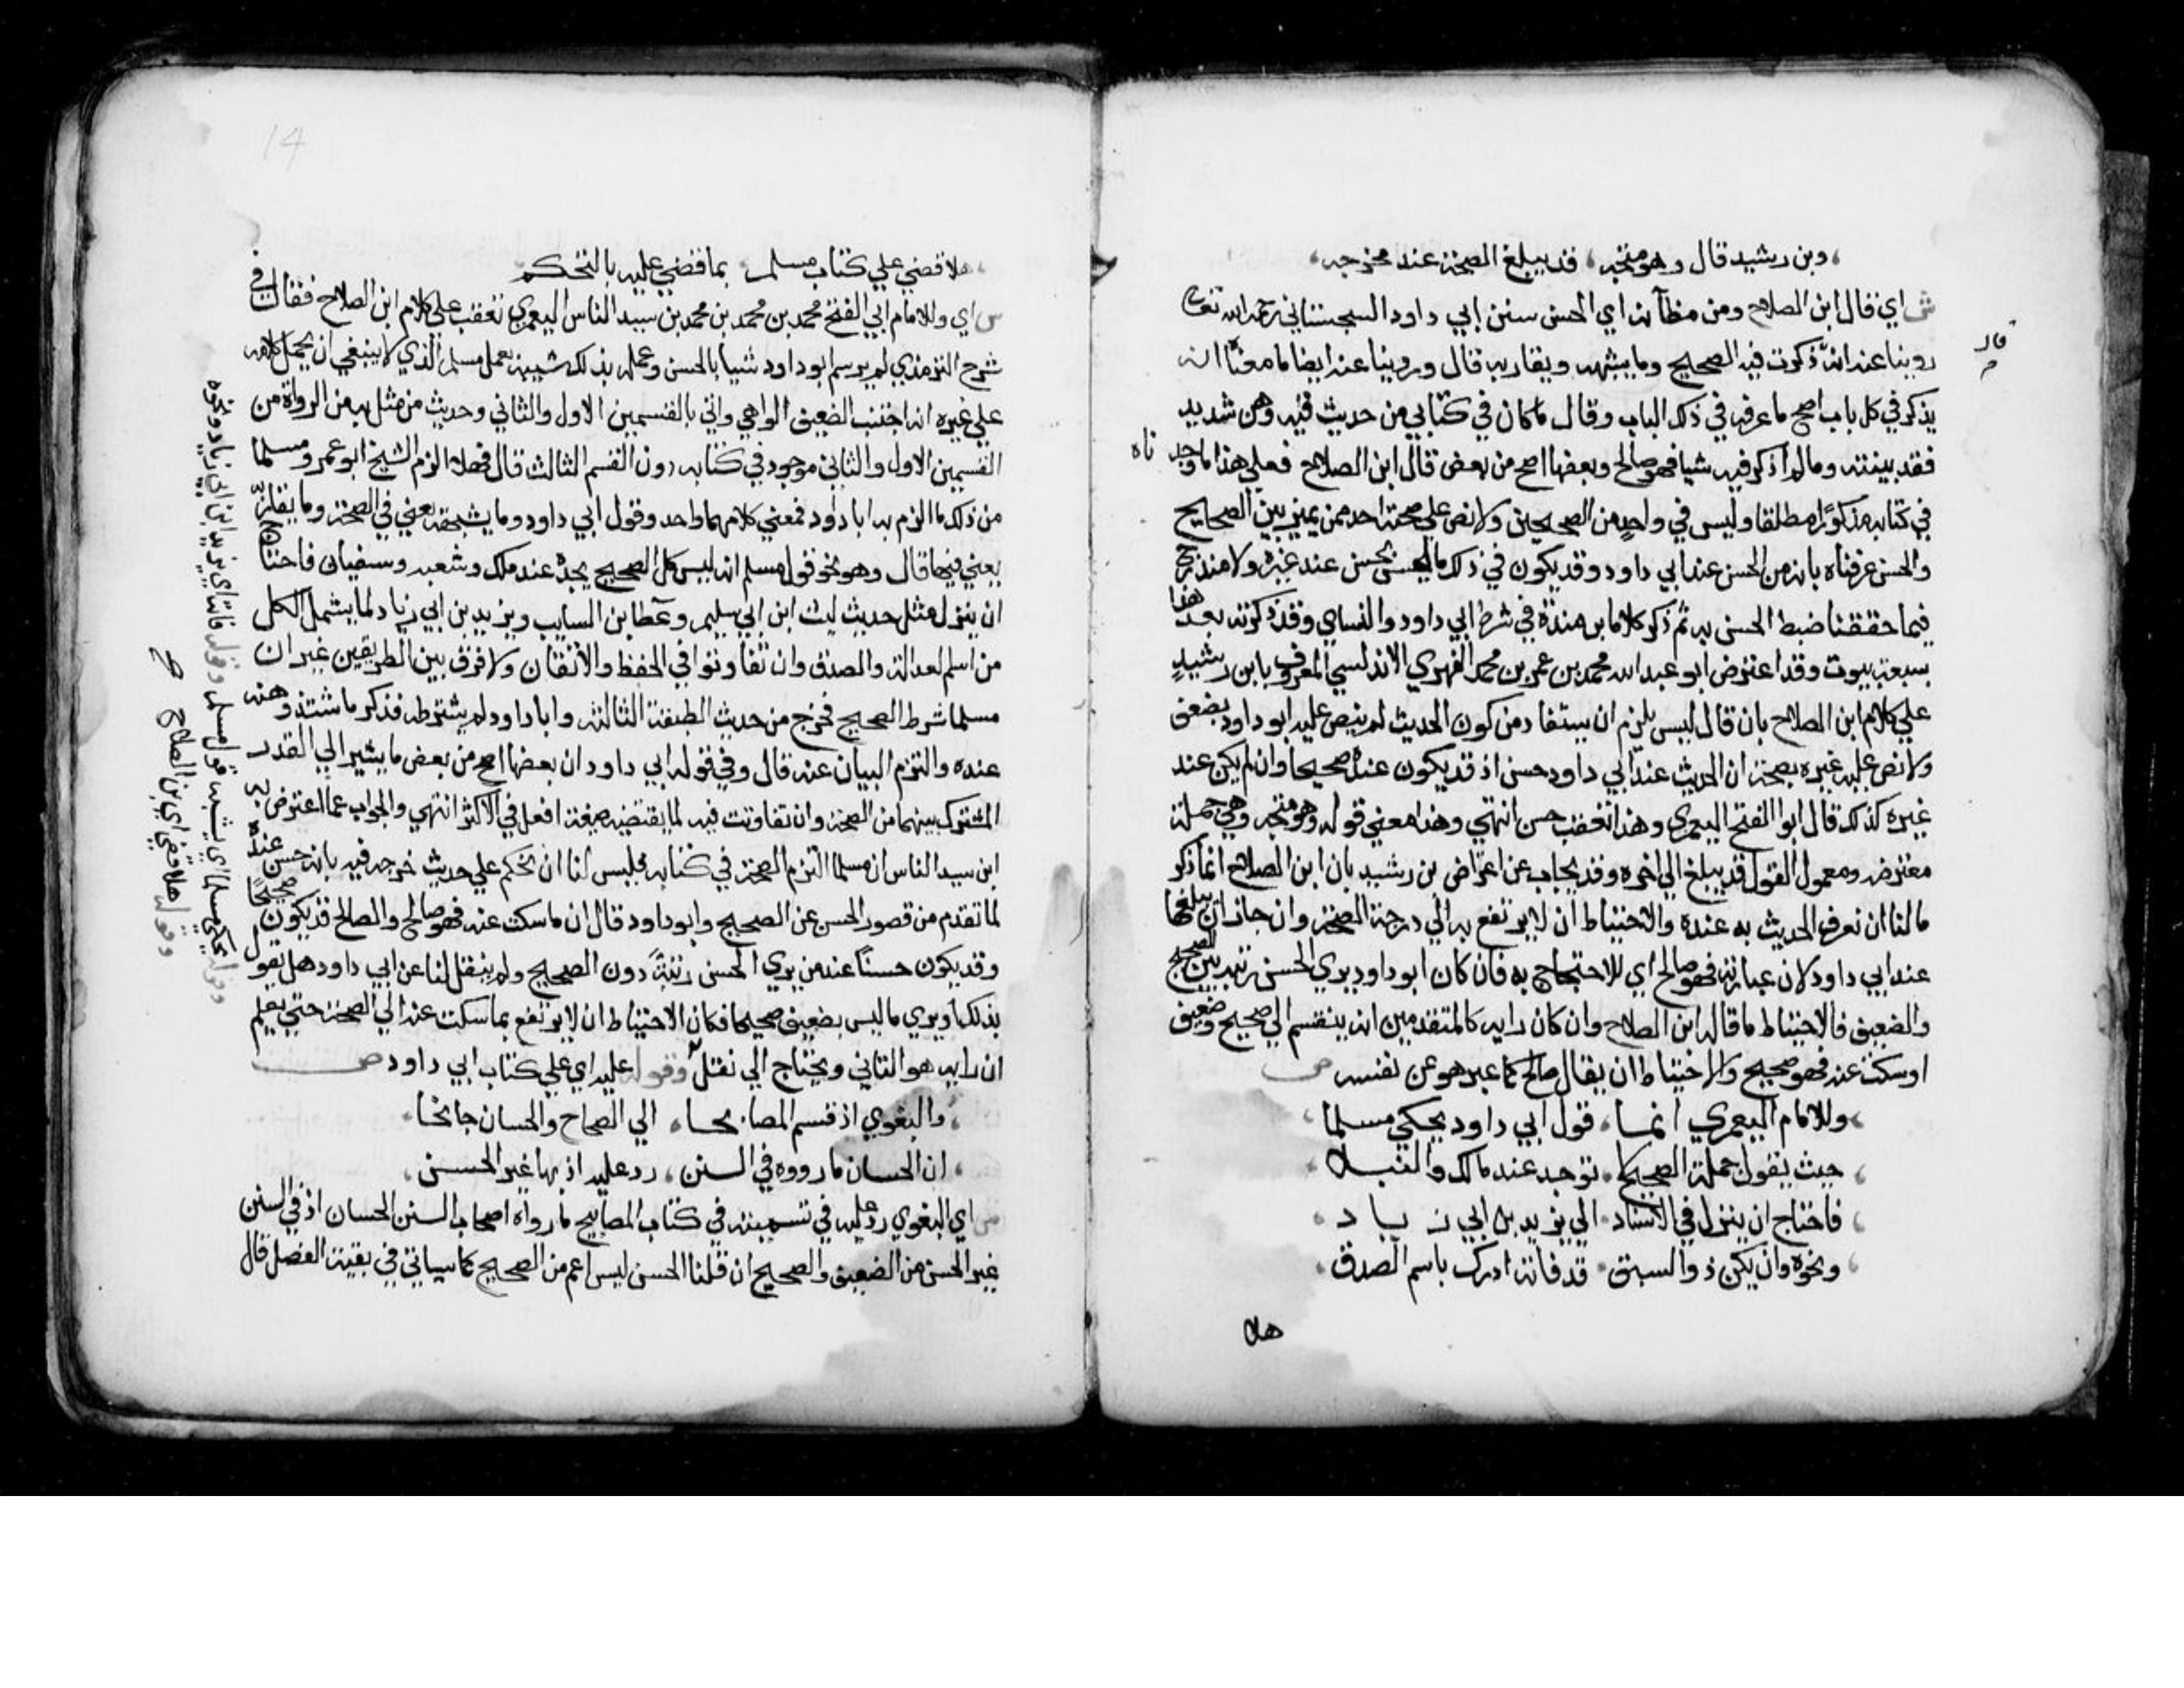 وبن رشيد قال وهو متجه ، قد يبلغ الصحة عند مخرجه
ش اي قال ابن الصلاح ومن مظانه اي الحسن سنن ابي داود السجستاني رحمه الله تعالى
روينا عنه انه ذكرت فيه الصحيح وما يشبهه ويقاربه قال وروينا عنه ايضا ما معناه انه
يذكر في كل باب اصح ما عرفه في ذلك الباب وقال ما كان في كتابي من حديث فيه وهن شديد
فقد بينته وما لم اذكر فيه شيا فهو صالح وبعضها اصح من بعض قال ابن الصلاح فعلي هذا ما وجد ناه
في كتابه مذكورا مطلقا وليس في واحد من الصحيحين ولا نص علي صحته احد ممن يميز بين الصحيح
والحسن عرفناه بانه من الحسن عند ابي داود وقد يكون في ذلك ما ليس بحسن عند غيره ولا مندرج
فيما حققنا ضبط الحسن به ثم ذكر كلام ابن مندة في شرط ابي داود والنساي وقد ذكرته بعد هذا
بسبعة بيوت وقد اعترض ابو عبد الله محمد بن عمر بن محمد الفهري الاندلسي المعروف بابن رشيد
علي كلام ابن الصلاح بان قال ليس يلزم ان يستفاد من كون الحديث لم ينص عليه ابو داود بضعف
ولا نص عليه غيره بصحة ان الحديث عند ابي داود حسن اذ قد يكون عنده صحيحا وان لم يكن عند
غيره كذلك قال ابوا الفتح اليعمري وهذا تعقب حسن انتهي وهذا معني قوله وهو متجه وهي جملة
معترضه ومعمول القول قد يبلغ الي اخره وقد يجاب عن اعتراض بن رشيد بان ابن الصلاح انما ذكر
ما لنا ان نعرف الحديث به عنده والاحتياط ان لا يرتفع به الي درجة الصحة وان جاز ان يبلغها
عند ابي داود لان عبارته فهو صالح اي للاحتجاج به فان كان ابو داود يري الحسن رتبه بين الصحيح
والضعيف فالاحتياط ما قاله ابن الصلاح وان كان رايه كالمتقدمين انه ينقسم الي صحيح وضعيف
او سكت عنه فهو صحيح والاحتياط ان يقال صالح كما عبر هو عن نفسه ص
وللامام اليعمري انما ، قول ابي داود يحكي مسلما
حيث يقول جملة الصحيح لا ، توجد عند مالك والنبلا
فاحتاج ان ينزل في الاسناد ، الي يزيد بن ابي زياد
ونحوه وان يكن ذو السبق ، قد فاته ادرك باسم الصدق
هلا
14
هلا قضي علي كتاب مسلم ، بما قضي عليه بالتحكم
ش اي وللامام ابي الفتح محمد بن محمد بن محمد بن سيد الناس اليعمري تعقب علي كلام ابن الصلاح فقال في
شرح الترمذي لم يرسم ابو داود شيا بالحسن وعمله بذلك شبيه بعمل مسلم الذي لا ينبغي ان يحمل كلامه
علي غيره انه اجتنب الضعيف الواهي واتي بالقسمين الاول والثاني وحديث من مثل به من الرواة من
القسمين الاول والثاني موجود في كتابه دون القسم الثالث قال فهلا الزم الشيخ ابو عمرو مسلما
من ذلك ما الزم به ابا داود فمعني كلامهما واحد وقول ابي داود وما يشبهه يعني في الصحة وما يقاربه
يعني فيها قال وهو نحو قول مسلم انه ليس كل الصحيح يجده عند ملك وشعبه وسفيان فاحتاج
ان ينزل مثل حديث ليث ابن ابي سليم وعطا بن السايب ويزيد بن ابي زياد لما يشمل الكل
من اسم العدالة والصدق وان تفاوتوا في الحفظ والاتقان ولا فرق بين الطريقين غير ان
مسلما شرط الصحيح فخرج من حديث الطبقة الثالثه وابا داود لم يشترطه فذكر ما شتد وهنه
عنده والتزم البيان عنه قال وفي قوله ابي داود ان بعضها اصح من بعض ما يشير الي القدر
المشترك بينهما من الصحة وان تفاوتت فيه لما يقتضيه صيغة افعل في الاكثر انتهي والجواب عما اعترض به
ابن سيد الناس ان مسلما التزم الصحة في كتابه فليس لنا ان نحكم علي حديث خرجه فيه بانه حسن عنده
لما تقدم من قصور الحسن عن الصحيح وابو داود قال ان ما سكت عنه فهو صالح والصالح قد يكون صحيحا
وقد يكون حسنا عند من يري الحسن رتبة دون الصحيح ولم ينقل لنا عن ابي داود هل يقول
بذلك او يري ما ليس بضعيف صحيحا فكان الاحتياط ان لا يرتفع بما سكت عنه الي الصحة حتي يعلم
ان رايه هو الثاني ويحتاج الي نقل وقوله عليه اي علي كتاب ابي داود ص
والبغوي اذ قسم المصابحا ، الي الصحاح والحسان جانحا
ان الحسان ما رووه في السنن ، رد عليه اذ بها غير الحسن
ش اي البغوي رد عليه في تسميته في كتاب المصابيح ما رواه اصحاب السنن الحسان اذ في السنن
غير الحسن من الضعيف والصحيح ان قلنا الحسن ليس اعم من الصحيح كما سياتي في بقية الفصل قال
وقوله يحكي مسلما اي يشبه قول مسلم وقوله فاتا اي يزيد ابن ابي زياد ونحوه
وقوله هلا قضي اي بن الصلاح صح